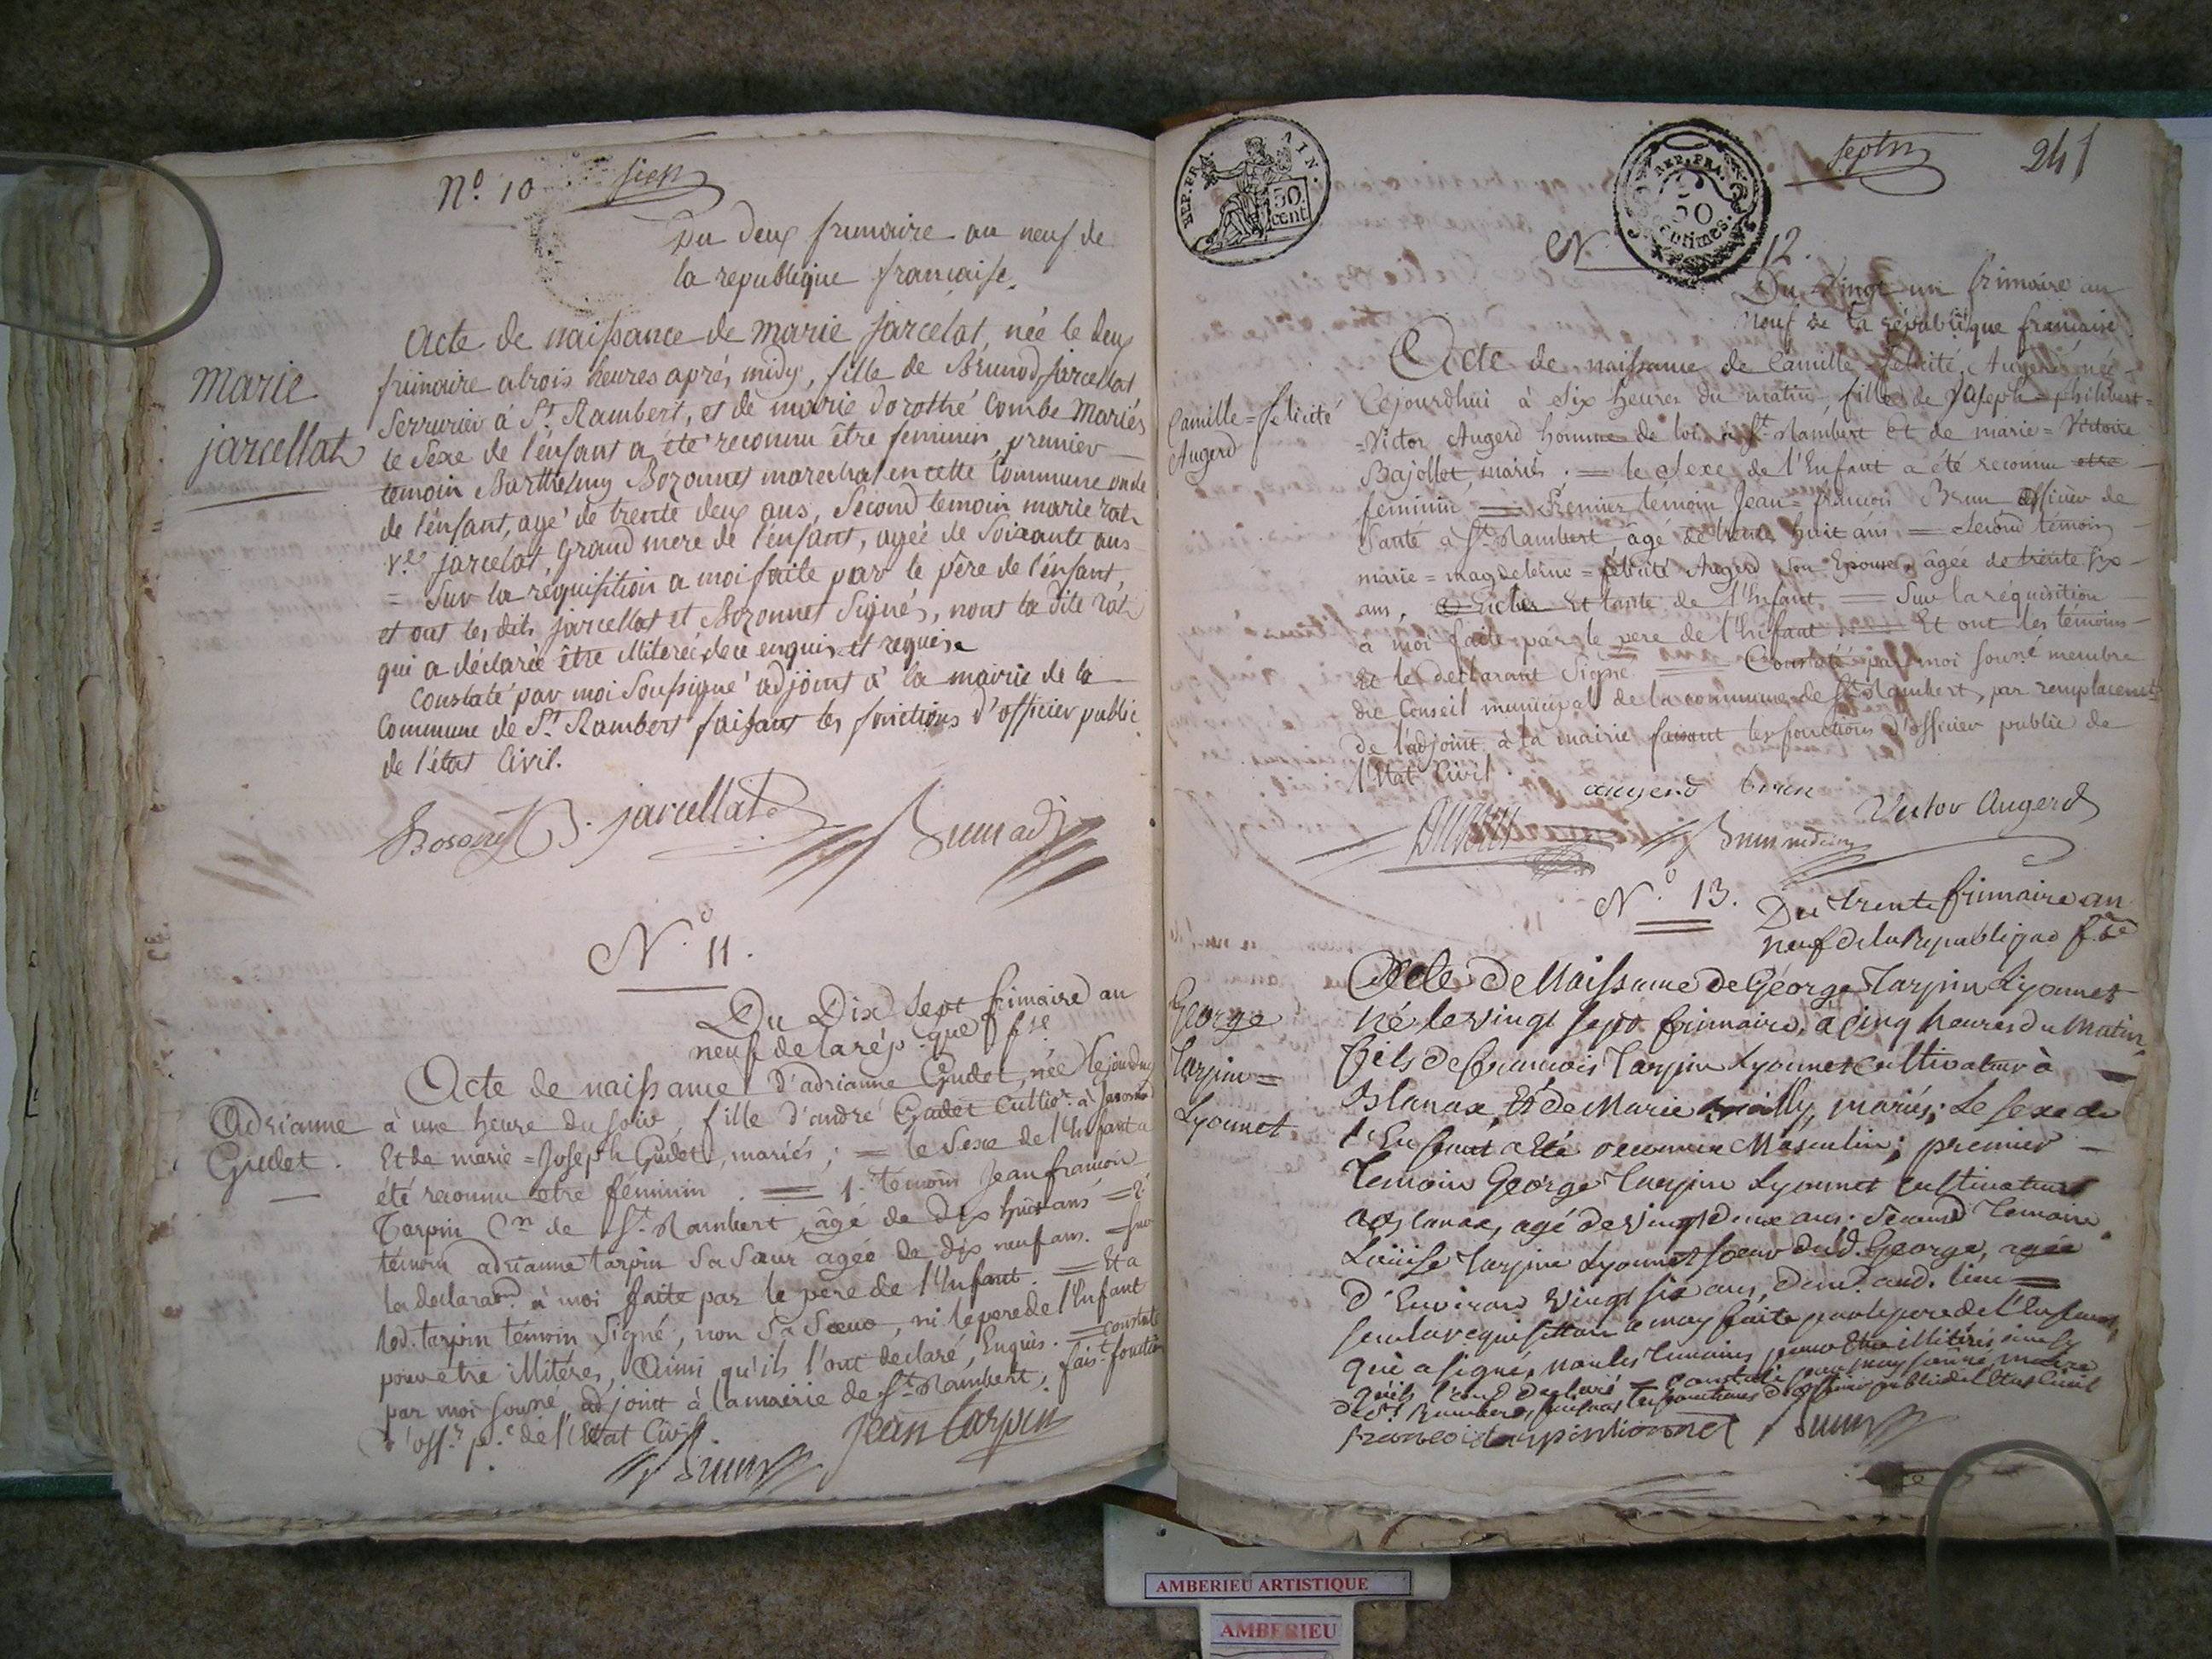 N.º 10
Du deux frimaire an neuf de
la republique francaise.
Marie
jarcellat
Acte de naissance de marie jarcelat, née le deux
frimaire a trois heures aprés midy, fille de Brunod jarcellat
Serrurier à S.t Rambert, et de marie dorothé Combe Mariés
le Sexe de l'enfant a été reconnu être feminin, premier
temoin Barthelmy Bozonnet marechal en cette Commune oncle
de l'enfant, agé de trente deux ans, Second temoin marie rat
v.ve jarcelat, Grand mere de l'enfant, agée de Soixante ans
= Sur la requisition a moi faite par le père de l'enfant,
et ont les dits jarcellat et Bozonnet Signés, nont la dite rat
qui a déclarée être illiterée, de ce enquise et requise
Constaté par moi Soussigné adjoint à la mairie de la
Commune de S.t Rambert faisant les fonctions d'officier public
de l'état Civil.
B. jarcellat
Brun adj
N.º 11.
Du Dix Sept frimaire an
neuf de la rép.que fse
Adrianne
Gudet.
Acte de naissance d'adrianne Gudet, née cejourdhuy
à une heure du soir, fille d'andré Gudet cultiv.r à
Et de marie = Joseph Gudet, mariés; = le Sexe de l'Enfant a
été reconnu etre féminin. = 1.r temoin Jean francois
Tarpin C.n de S.t Rambert, âgé de dix huit ans = 2.e
témoin adrianne tarpin Sa Sœur agée de dix neuf ans. = Sur
la declara.on à moi faite par le pere de l'Enfant. = Et a
led. tarpin témoin Signé, non Sa Sœur, ni le pere de l'Enfant
pour etre illiterés, Ainsi qu'ils l'ont declaré, Enquis. = constaté
par moi sousné, adjoint à la mairie de S.t Rambert, fais.t fonction
d'off.r p.c de l'Etat Civil.
Brun
jean tarpin
REP. FRA.
50
cent.
REP. FRA.
50
centimes.
241
N. 12.
Du Vingt un frimaire an
Neuf de la république francaise.
Camille = Félicité
Augerd
Acte de naissance de Camille félicité Augerd née
Cejourdhui à Six heures du matin, fille de Joseph = philibert =
=Victor Augerd homme de loi à S.t Rambert Et de marie = Victoire
Bajollet, mariés. = le Sexe de l'Enfant a été reconnu etre
feminin = Premier témoin Jean = francois Brun officier de
Santé à S.t Rambert âgé de trente huit ans = Second témoin
marie = magdeleine = félicité Augerd son Epouse, âgée de trente six
ans, Et tante de l'Enfant. = Sur la réquisition
à moi faite par le pere de l'Enfant = Et ont les témoins
Et le declarant Signé. = Constaté par moi sousné membre
du Conseil municipal de la commune de S.t Rambert, par remplacement
de l'adjoint à la mairie faisant les fonctions d'officier public de
l'Etat Civil.
augerd brun
Victor Augerd
N.º 13.
Du trente frimaire an
neuf de la Republique fse
George
Tarpin =
Lyonnet
Acte de Naissance de George Tarpin Lyonnet
né le vingt sept frimaire, à cinq heures du matin,
fils de francois Tarpin Lyonnet Cultivateur à
Blanax, Et de Marie, mariés; Le sexe de
l'Enfant a été reconnu Masculin; premier
Temoin George Tarpin Lyonnet Cultivateur
a Blanax, agé de vingt deux ans. Second Temoin
Louise Tarpin Lyonnet sœur dud. George, agée
d'Environ vingt six ans, dem.t aud. lieu =
Sur la requisition a moy faite par le pere de l'Enfant,
qui a signé, non les Temoins pour être illitérés ainsy
quils l'ont declaré = Constaté par moy sousné, maire
de S.t Rambert, faisant les fonctions d'officier public de l'Etat Civil
Brun
AMBERIEU ARTISTIQUE
AMBERIEU